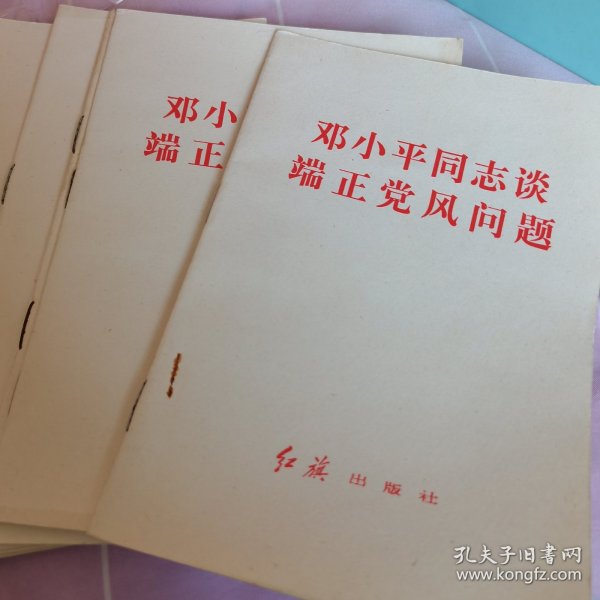 邓小
端正
邓小平同志谈
端正党风问题
红旗 出版社
孔夫子旧书网
www.kongfz.com